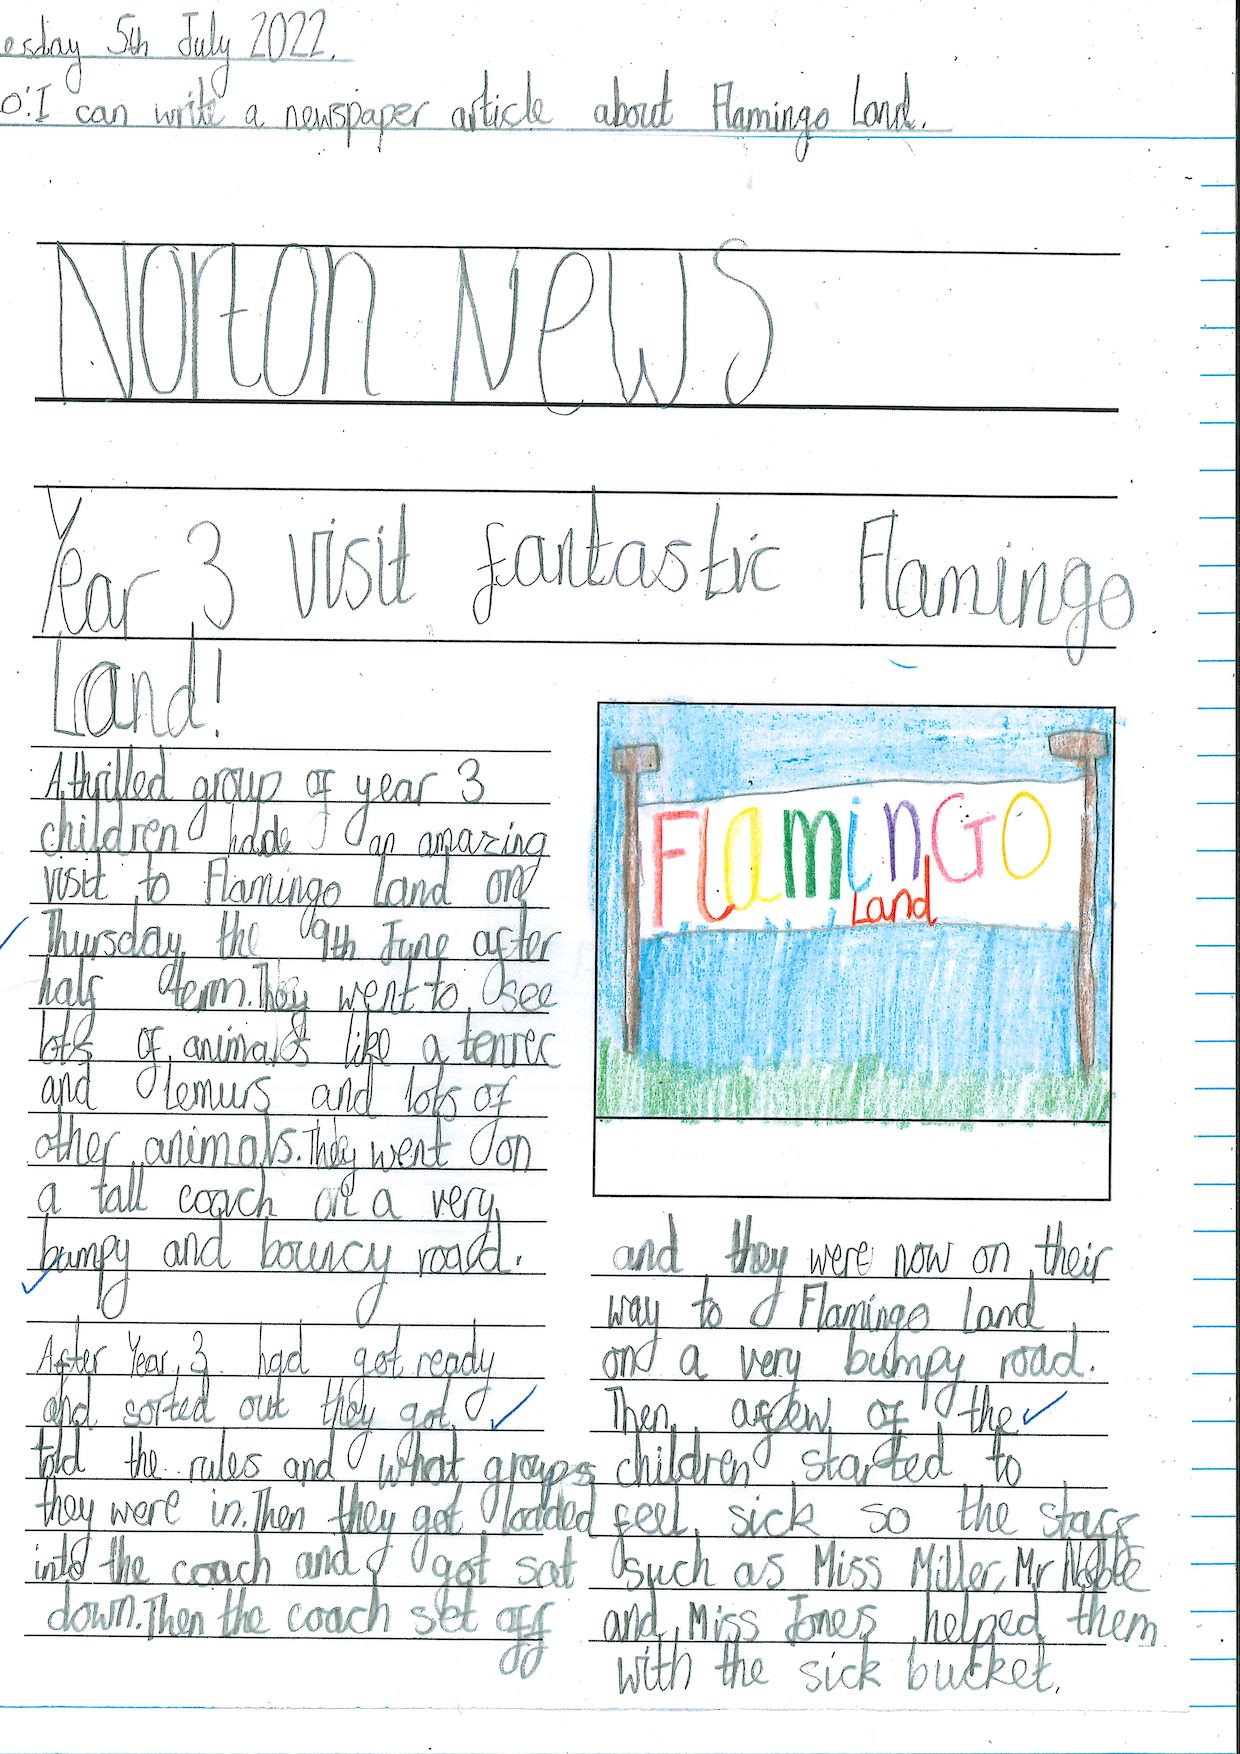 esday 5th July 2022.
O: I can write a newspaper article about Flamingo Land.
Norton News
Year 3 visit fantastic Flamingo
Land!
A thrilled group of year 3
children hade an amazing
visit to Flamingo Land on
Thursday the 9th June after
half term. They went to see
lots of animals like a tenrec
and lemurs and lots of
other animals. They went on
a tall coach on a very
bumpy and bouncy road.
After Year 3 had got ready
and sorted out they got
told the rules and what groups
they were in. Then they got loaded
into the coach and got sat
down. Then the coach set off
FlaminGO
Land
and they were now on their
way to Flamingo Land
on a very bumpy road.
Then a few of the
children started to
feel sick so the staff
such as Miss Miller, Mr Noble
and Miss Jones helped them
with the sick bucket.